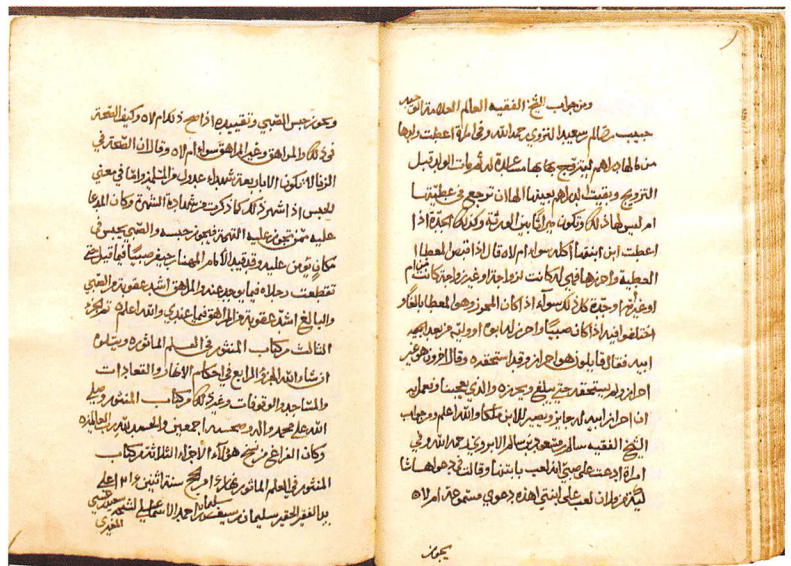 ومن جواب الشيخ الفقيه العالم العلامة
حبيب بن سالم بن سعيد النزوي رحمه الله وفي امرأة اعطت ولدها
من مالها دراهم ليتزوج بها بها مساعدة له ثم مات الولد قبل
التزويج وبقيت الدراهم بعينها الها ان ترجع في عطيتها
ام ليس لها ذلك وتكون ميراثا بين الورثة وكذلك الجدة اذا
اعطت ابن ابنتها أكله سواء ام لا قال اذا قبض المعطا
العطية واحرزها فهي له كانت لزواجة او غير زواجة كانت من ام
او غير ام او جدة كل ذلك سواء اذا كان المحرز وهو المعطا بالغا و
اختلفوا فيه اذا كان صبيا واحرز له ابوه او وليه من بعد
ابيه فقال قايلون هو احراز وقد استحقه وقال اخرون هو غير
احراز ولم يستحقه حتى يبلغ ويحرزه والذي يعجبنا ونعمل به
ان احراز ابيه له جايز ويصير للابن ملكا والله اعلم ومن جواب
الشيخ الفقيه سالم بن سالم رحمه الله وفي
امراة ادعت على صبي انه لعب بابنتها وقالت في دعواها
ان لعب على ابنتي اهذه دعوى مسموعة ام لا
يجوز
ويجوز حبس الصبي وتقييده اذا صح ذلك ام لا وكيف الصحة
في ذلك والمراهق وغير المراهق سواء ام لا وقال ان الصحة في
الزنا لا تكون الا باربعة شهداء عدول واما في معنى
الحبس اذا شهر ذلك كما ذكرت من شهادة الشهرة وكان المدعا
عليه ممن تجوز عليه التهمة فيجوز حبسه والصبي يحبس في
مكان يؤمن عليه وقد قيد الامام المهنا بن جيفر صبيا فيما قيل حتى
تقطعت رجلاه فيما يوجد عنه والمراهق اشد عقوبة من الصبي
والبالغ اشد عقوبة من المراهق فيما عندي والله اعلم تم الجزء
الثالث من كتاب المنثور في العلم الماثور ويتلوه
ان شاء الله الجزء الرابع في احكام
والمساجد والوقوفات وغير ذلك من كتاب المنثور وصلى
الله على محمد واله وصحبه اجمعين والحمد لله رب العالمين
وكان الفراغ من نسخ هؤلاء الاجزاء الثلاثة من كتاب
المنثور في العلم الماثور سنة اثنين على
يد الفقير الحقير سليمان بن سيف بن سليمان بن احمد